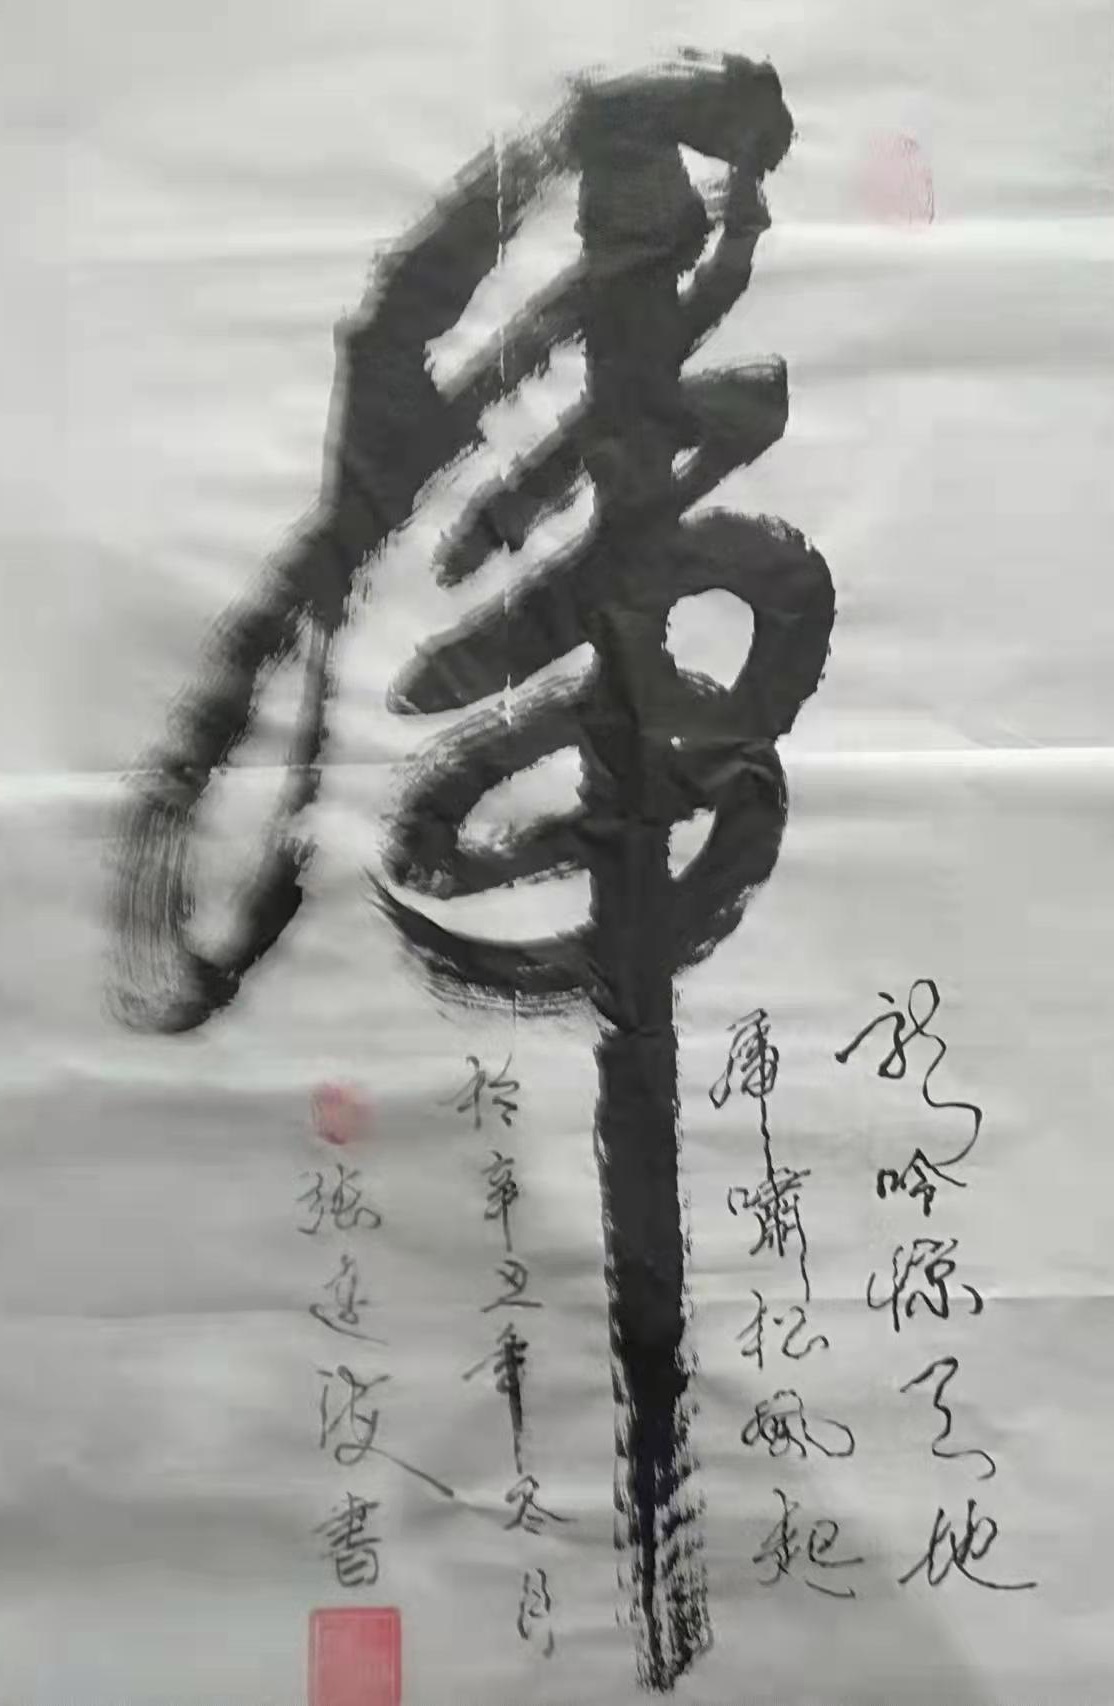 虎
龍吟惊天地
虎嘯松風起
於辛丑年冬月
張連波書